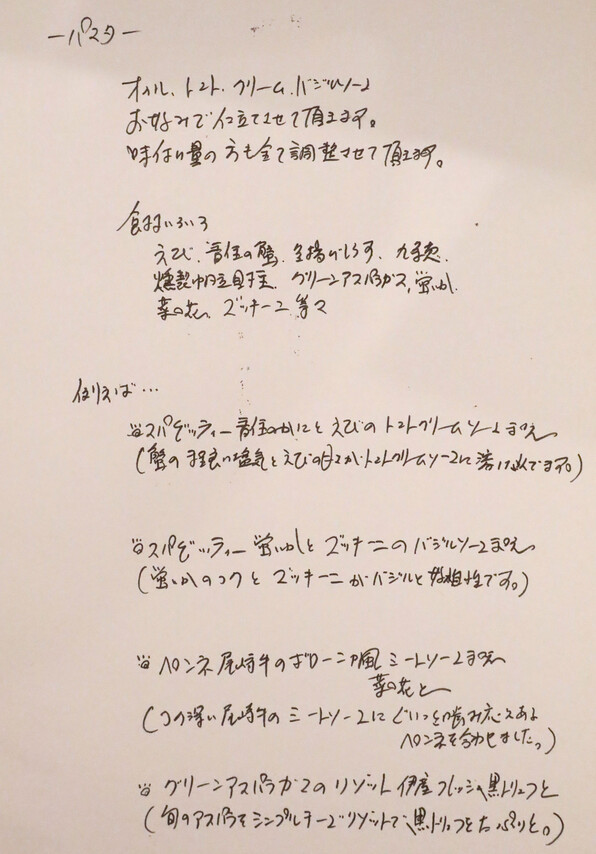 ーパスターー
オイル、トマト、クリーム、バジルソース
お好みで仕立てさせて頂きます。
味付け量の方も全て調整させて頂きます。
食材いろいろ
えび、香住の蟹、釜揚げしらす、九条葱、
燻製帆立貝柱、グリーンアスパラガス、蛍いか、
菜の花、ズッキーニ 等々
例えば…
スパゲッティー 香住のかにとえびのトマトクリームソース
(蟹の程良い塩気とえびの甘さがトマトクリームソースに溶け込んでます。)
スパゲッティー 蛍いかとズッキーニのバジルソース
(蛍いかのコクとズッキーニがバジルと好相性です。)
ペンネ 尾崎牛のボローニャ風ミートソース
菜の花と
(コク深い尾崎牛のミートソースにぐいっと噛み応えある
ペンネを合わせました。)
グリーンアスパラガスのリゾット 伊産フレッシュ黒トリュフと
(旬のアスパラをシンプルチーズリゾットで、黒トリュフをたっぷりと。)